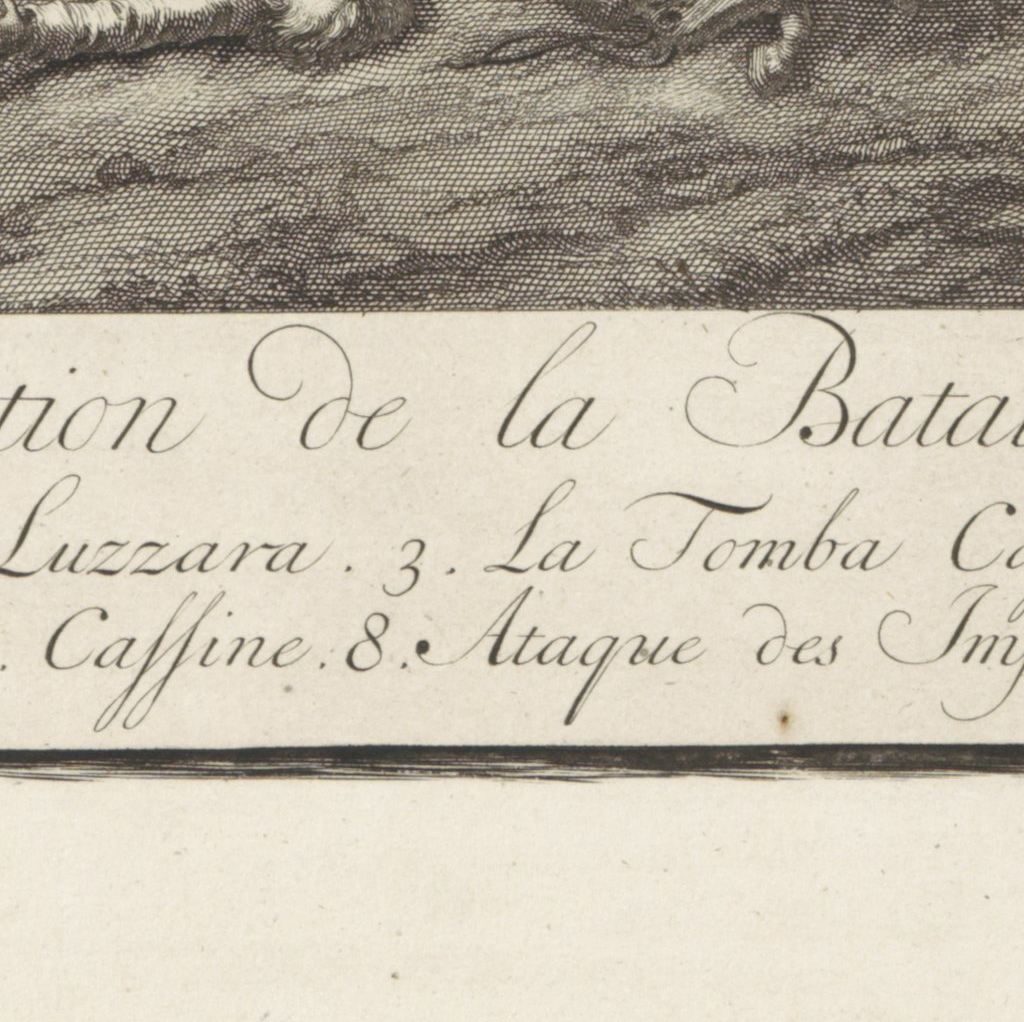 tion de la Batai
Luzzara . 3 . La Tomba Ca
. Caſſine . 8 . Ataque des Imp